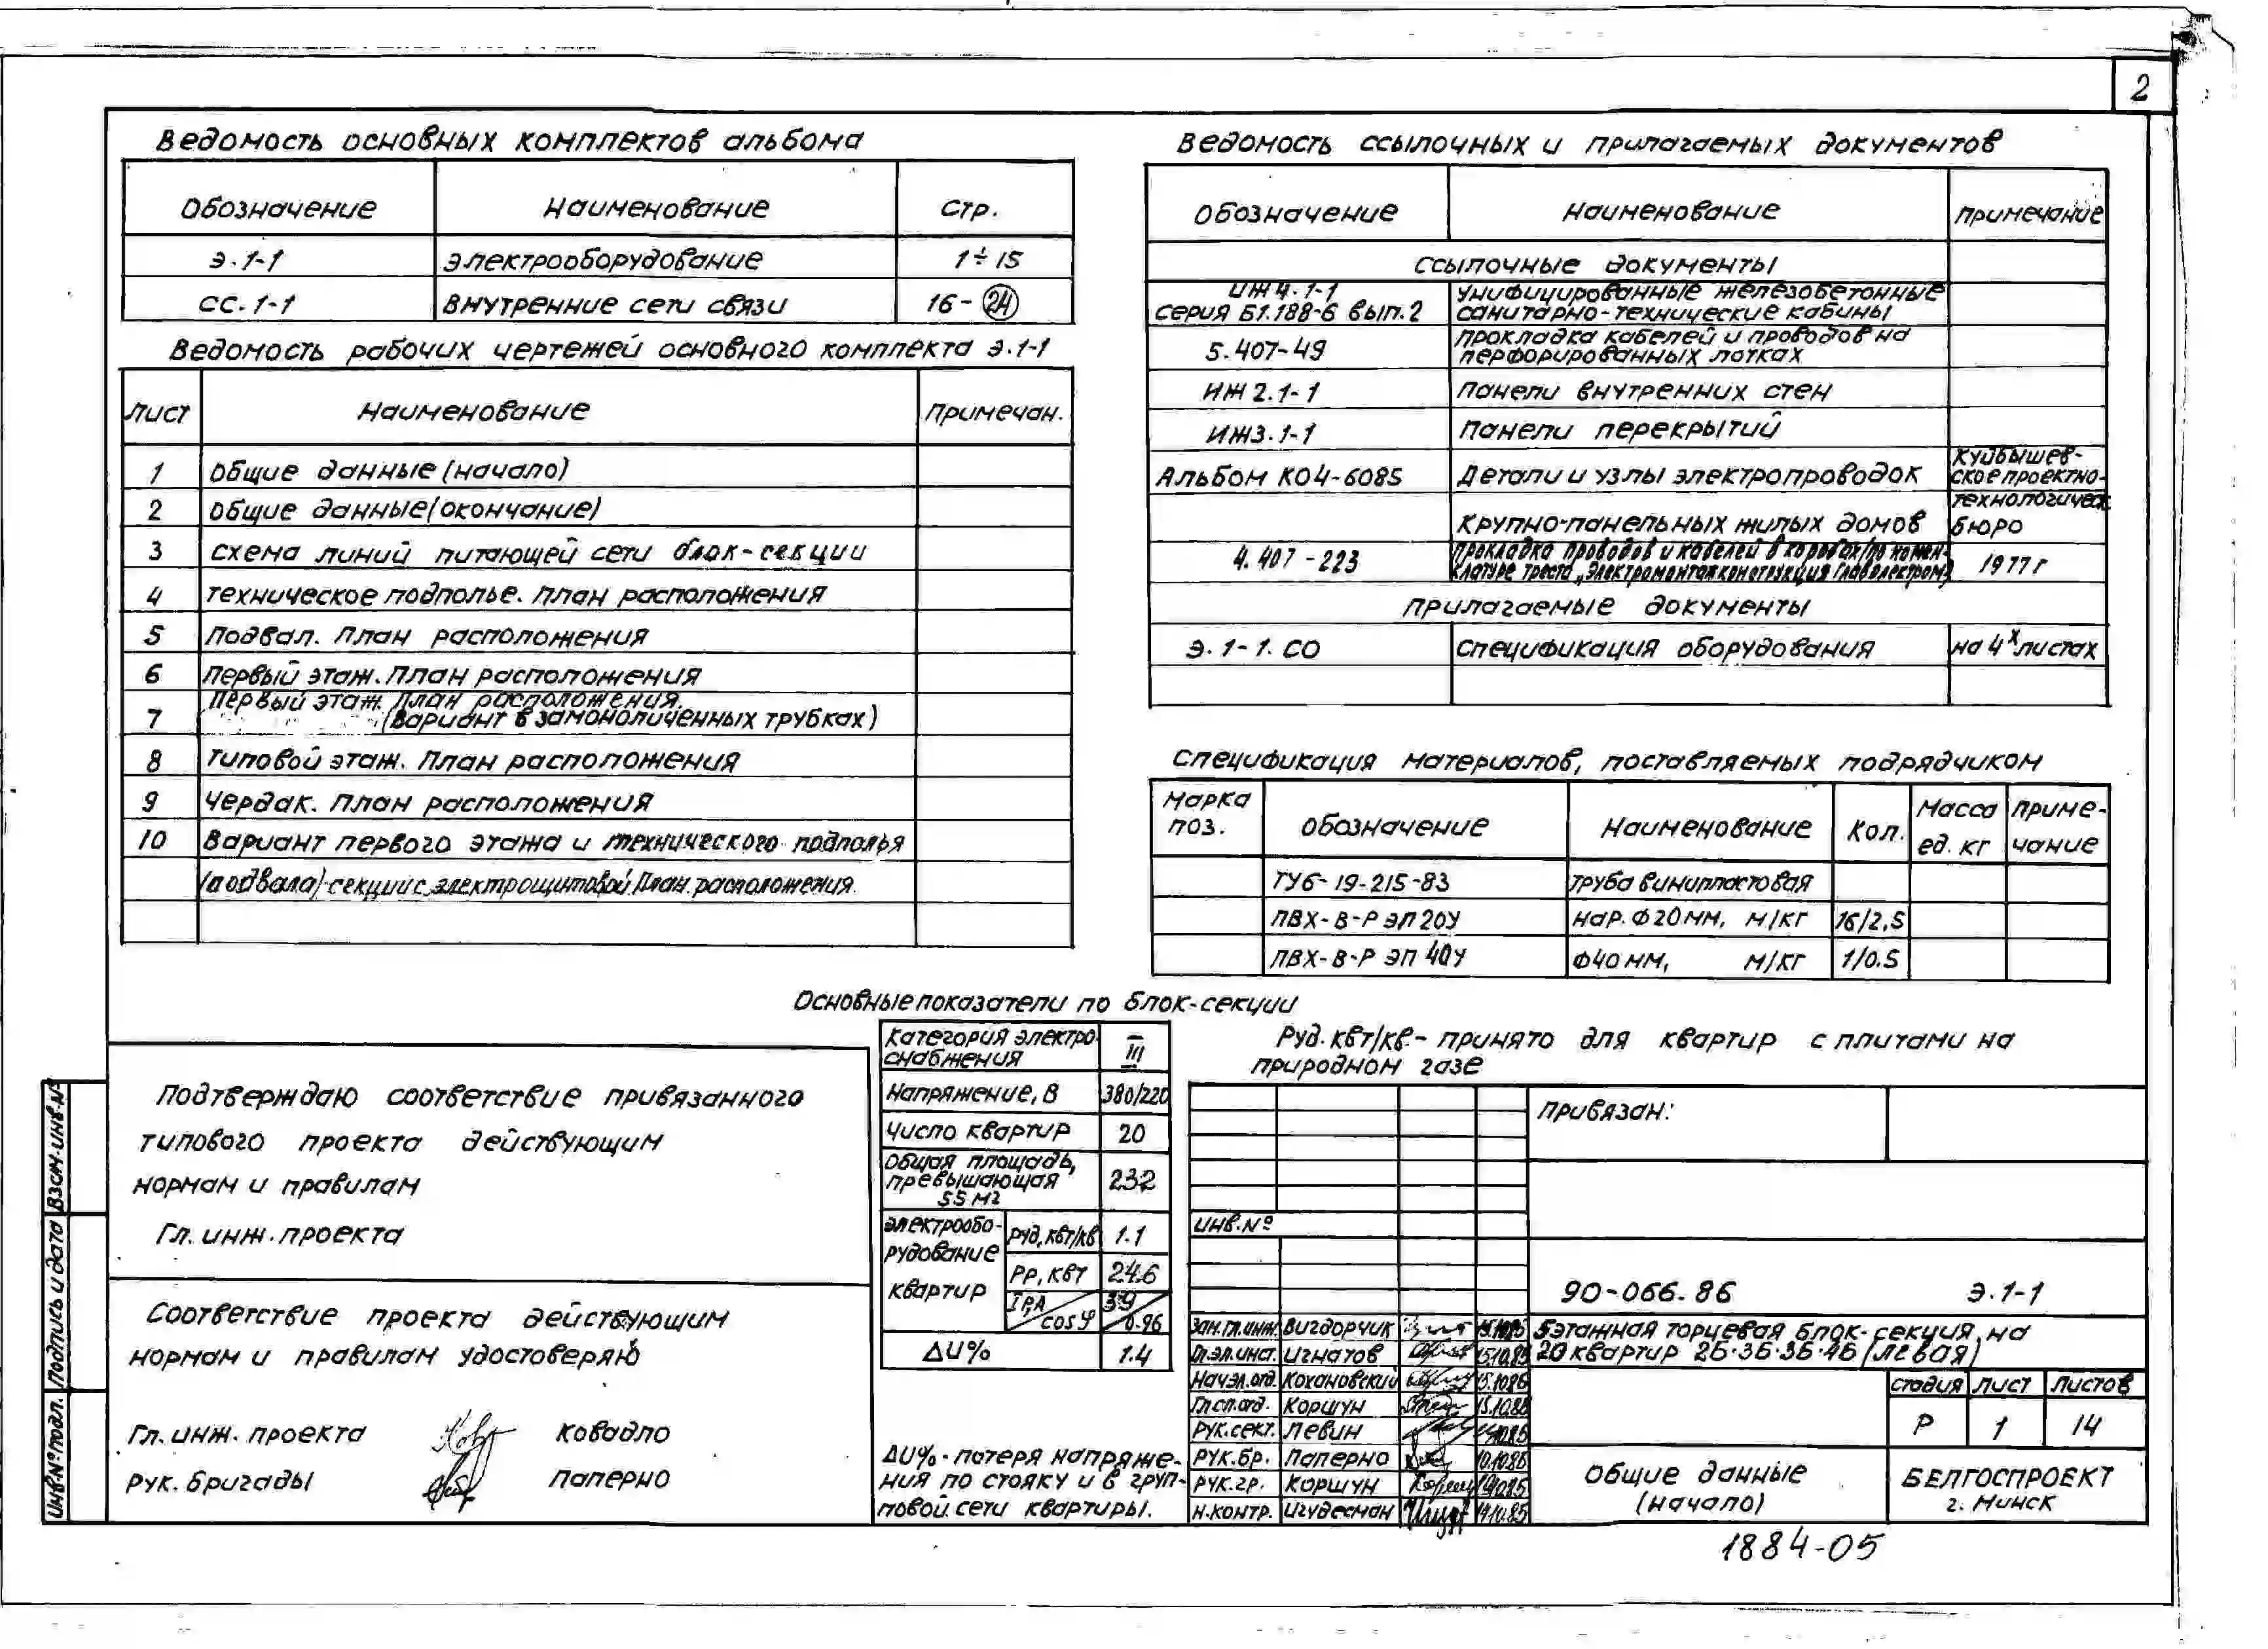 2
Ведомость основных комплектов альбома
Обозначение Наименование Стр.
Э.1-1 Электрооборудование 1÷15
СС.1-1 Внутренние сети связи 16-24
Ведомость рабочих чертежей основного комплекта Э.1-1
Лист Наименование Примечан.
1 Общие данные (начало)
2 Общие данные (окончание)
3 Схема линий питающей сети блок-секции
4 Техническое подполье. План расположения
5 Подвал. План расположения
6 Первый этаж. План расположения
7 Первый этаж. План расположения.
(Вариант в замоноличенных трубках)
8 Типовой этаж. План расположения
9 Чердак. План расположения
10 Вариант первого этажа и технического подполья
(подвала) секции с электрощитовой. План расположения.
Ведомость ссылочных и прилагаемых документов
Обозначение Наименование Примечание
Ссылочные документы
ИЖ4.1-1 Унифицированные железобетонные
серия Б1.188-6 вып.2 санитарно-технические кабины
5.407-49 Прокладка кабелей и проводов на
перфорированных лотках
ИЖ2.1-1 Панели внутренних стен
ИЖ3.1-1 Панели перекрытий
Альбом КО4-6085 Детали и узлы электропроводок
крупно-панельных жилых домов
Куйбышев-
ское проектно-
технологическ.
бюро
4.407-223 Прокладка проводов и кабелей в коробах/по номен-
клатуре треста „Электромонтажконструкция Главэлектром.) 1977г
Прилагаемые документы
Э.1-1.СО Спецификация оборудования на 4х листах
Спецификация материалов, поставляемых подрядчиком
Марка поз. Обозначение Наименование Кол. Масса ед. кг Приме-чание
ТУ6-19-215-83 Труба винипластовая
ПВХ-В-Р ЭП 20У нар. Ф20мм, м/кг 16/2,5
ПВХ-В-Р ЭП 40У Ф40мм, м/кг 1/0.5
Основные показатели по блок-секции
Категория электро-
снабжения III
Напряжение, В 380/220
Число квартир 20
Общая площадь,
превышающая
55м2 232
Электрообо-
рудование
квартир
Руд, квт/кв 1.1
Рр, квт 24.6
Iр,А/cosφ 39/0.96
ΔU% 1.4
ΔU% - потеря напряже-
ния по стояку и в груп-
повой сети квартиры.
Руд. квт/кв - принято для квартир с плитами на
природном газе
Подтверждаю соответствие привязанного
типового проекта действующим
нормам и правилам
Гл. инж. проекта
Соответствие проекта действующим
нормам и правилам удостоверяю
Гл. инж. проекта Ковадло
Рук. бригады Паперно
Взам. инв.№
Подпись и дата
Инв.№подл.
Привязан:
Инв.№
90-066.86 Э.1-1
Зам.гл.инж. Вигдорчик
Гл.эл.инст. Игнатов 15.10.85
Нач.эл.отд. Кохановский
Гл.сп.отд. Коршун
Рук.сект. Левин
Рук.бр. Паперно
Рук.гр. Коршун
Н.контр. Игудесман 14.10.85
5этажная торцевая блок-секция на
20 квартир 2Б·3Б·3Б·4Б (левая)
Стадия Лист Листов
Р 1 14
Общие данные
(начало)
БЕЛГОСПРОЕКТ
г. Минск
1884-05